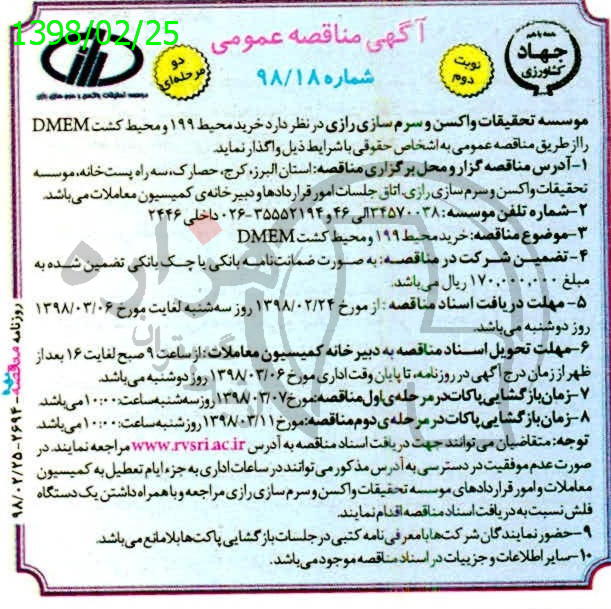 1398/02/25
آگهی مناقصه عمومی
شماره ۹۸/۱۸
دو مرحله‌ای
نوبت دوم
همه با هم
جهاد
کشاورزی
موسسه تحقیقات واکسن و سرم سازی رازی
موسسه تحقیقات واکسن و سرم سازی رازی در نظر دارد خرید محیط ۱۹۹ و محیط کشت DMEM
را از طریق مناقصه عمومی به اشخاص حقوقی با شرایط ذیل واگذار نماید.
۱-آدرس مناقصه گزار و محل برگزاری مناقصه: استان البرز، کرج، حصارک، سه راه پست‌خانه، موسسه
تحقیقات واکسن و سرم سازی رازی، اتاق جلسات امور قراردادها و دبیرخانه‌ی کمیسیون معاملات می‌باشد.
۲-شماره تلفن موسسه: ۳۴۵۷۰۰۳۸الی ۴۶ و ۳۵۵۵۲۱۹۴-۰۲۶ داخلی ۲۴۴۶
۳-موضوع مناقصه: خرید محیط ۱۹۹ و محیط کشت DMEM
۴-تضمین شرکت در مناقصه: به صورت ضمانت‌نامه بانکی یا چک بانکی تضمین شده به
مبلغ ۱۷۰,۰۰۰,۰۰۰ ریال می‌باشد.
۵- مهلت دریافت اسناد مناقصه : از مورخ ۱۳۹۸/۰۲/۲۴ روز سه‌شنبه لغایت مورخ ۱۳۹۸/۰۳/۰۶
روز دوشنبه می‌باشد.
۶-مهلت تحویل اسناد مناقصه به دبیرخانه کمیسیون معاملات: از ساعت ۹ صبح لغایت ۱۶ بعد از
ظهر از زمان درج آگهی در روزنامه، تا پایان وقت اداری مورخ ۱۳۹۸/۰۳/۰۶ روز دوشنبه می‌باشد.
۷-زمان بازگشایی پاکات در مرحله‌ی اول مناقصه:مورخ ۱۳۹۸/۰۳/۰۷ روز سه‌شنبه ساعت: ۱۰:۰۰ می‌باشد.
۸-زمان بازگشایی پاکات در مرحله‌ی دوم مناقصه:مورخ ۱۳۹۸/۰۳/۱۱ روز شنبه ساعت: ۱۰:۰۰ می‌باشد.
توجه: متقاضیان می‌توانند جهت دریافت اسناد مناقصه به آدرس www.rvsri.ac.ir مراجعه نمایند. در
صورت عدم موفقیت در دسترسی به آدرس مذکور می‌توانند در ساعات اداری به جزء ایام تعطیل به کمیسیون
معاملات و امور قراردادهای موسسه تحقیقات واکسن و سرم سازی رازی مراجعه و با همراه داشتن یک دستگاه
فلش نسبت به دریافت اسناد مناقصه اقدام نمایند.
۹-حضور نمایندگان شرکت‌ها با معرفی‌نامه کتبی در جلسات بازگشایی پاکت‌ها بلامانع می‌باشد.
۱۰-سایر اطلاعات و جزییات در اسناد مناقصه موجود می‌باشد.
روزنامه مناقصه ۲۶۹۴-۹۸/۰۲/۲۵
هزاره